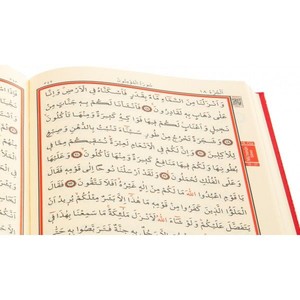 سُورَةُ الْمُؤْمِنُونَ
وَاَنْزَلْنَا مِنَ السَّمَاءِ مَاءً بِقَدَرٍ فَاَسْكَنَّاهُ فِي الْاَرْضِ وَاِنَّا
عَلٰى ذَهَابٍ بِهِ لَقَادِرُونَ فَاَنْشَأْنَا لَكُمْ بِهِ جَنَّاتٍ مِنْ
نَخِيلٍ وَاَعْنَابٍ لَكُمْ فِيهَا فَوَاكِهُ كَثِيرَةٌ وَمِنْهَا تَأْكُلُونَ
وَشَجَرَةً تَخْرُجُ مِنْ طُورِ سَيْنَاءَ تَنْبُتُ بِالدُّهْنِ وَصِبْغٍ
لِلْاٰكِلِينَ وَاِنَّ لَكُمْ فِي الْاَنْعَامِ لَعِبْرَةً نُسْقِيكُمْ مِمَّا
فِي بُطُونِهَا وَلَكُمْ فِيهَا مَنَافِعُ كَثِيرَةٌ وَمِنْهَا تَأْكُلُونَ
وَعَلَيْهَا وَعَلَى الْفُلْكِ تُحْمَلُونَ وَلَقَدْ اَرْسَلْنَا نُوحًا اِلٰى قَوْمِهِ فَقَالَ
يَا قَوْمِ اعْبُدُوا اللّٰهَ مَا لَكُمْ مِنْ اِلٰهٍ غَيْرُهُ اَفَلَا تَتَّقُونَ فَقَالَ
الْمَلَؤُا الَّذِينَ كَفَرُوا مِنْ قَوْمِهِ مَا هٰذَا اِلَّا بَشَرٌ مِثْلُكُمْ يُرِيدُ اَنْ
يَتَفَضَّلَ عَلَيْكُمْ وَلَوْ شَاءَ اللّٰهُ لَاَنْزَلَ مَلٰئِكَةً مَا سَمِعْنَا بِهٰذَا فِي
اِلَّا رَجُلٌ بِهِ جِنَّةٌ فَتَرَبَّصُوا بِهِ حَتّٰى